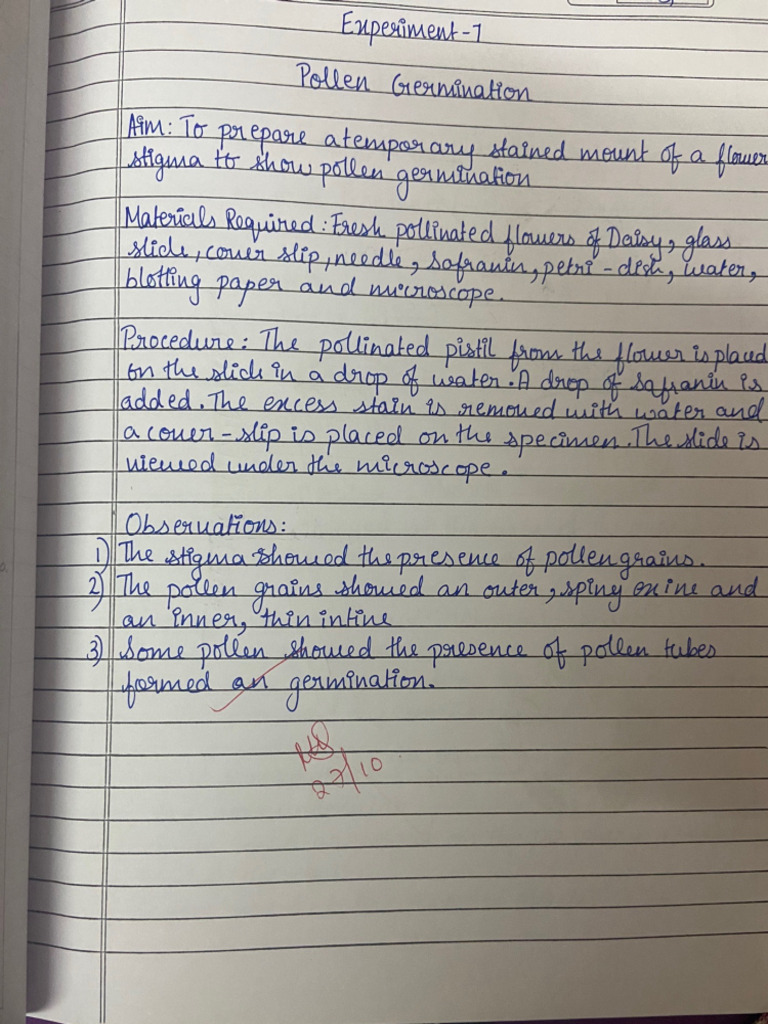 Experiment-1
Pollen Germination
Aim: To prepare a temporary stained mount of a flower
stigma to show pollen germination
Materials Required: Fresh pollinated flowers of Daisy, glass
slide, cover slip, needle, safranin, petri-dish, water,
blotting paper and microscope.
Procedure: The pollinated pistil from the flower is placed
on the slide in a drop of water. A drop of safranin is
added. The excess stain is removed with water and
a cover-slip is placed on the specimen. The slide is
viewed under the microscope.
Observations:
1) The stigma showed the presence of pollen grains.
2) The pollen grains showed an outer, spiny exine and
an inner, thin intine
3) Some pollen showed the presence of pollen tubes
formed an germination.
27/10